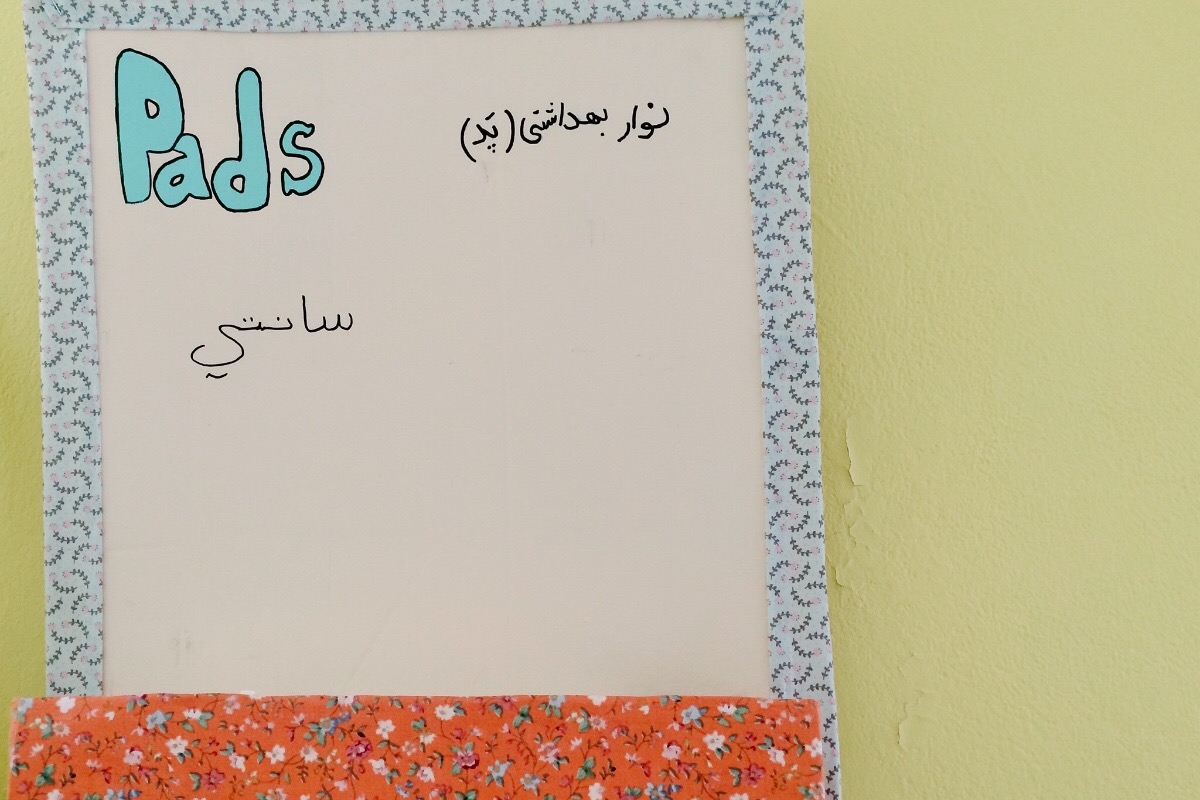 Pads
نوار بهداشتی (پَد)
سانتي